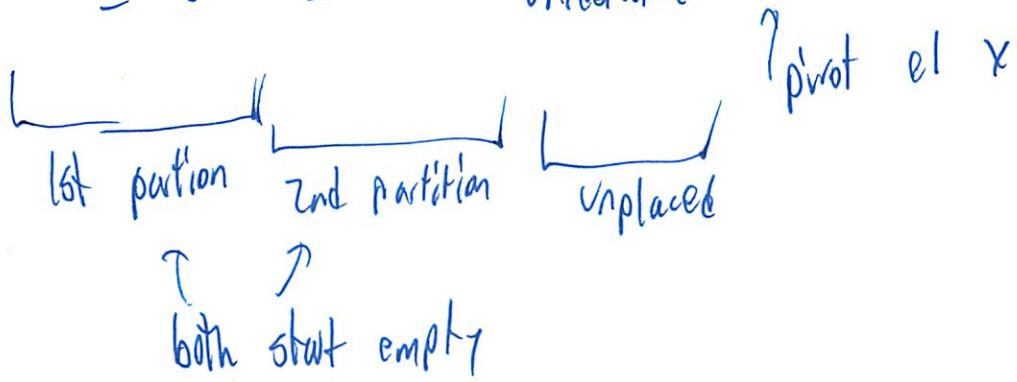 pivot el x
1st partion
2nd partition
unplaced
both start empty